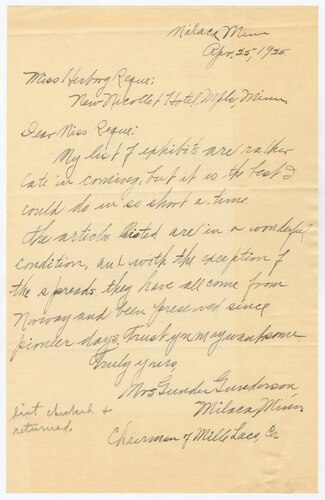 Milaca Minn
Apr. 25, 1925
Miss Herborg Reque;
New Nicollet Hotel Mpls, Minn.
Dear Miss Reque:
My list of exhibits are rather
late in coming, but it is the best I
could do in so short a time.
The articles listed are in a wonderful
condition, and with the exception of
the spreads they have all come from
Norway and been preserved since
pionier days. Trust you may want some
Truly yours,
Mrs Gunder Gunderson
Milaca, Minn.
Chairman of Mille Lacs, Co.
list checked &
returned.